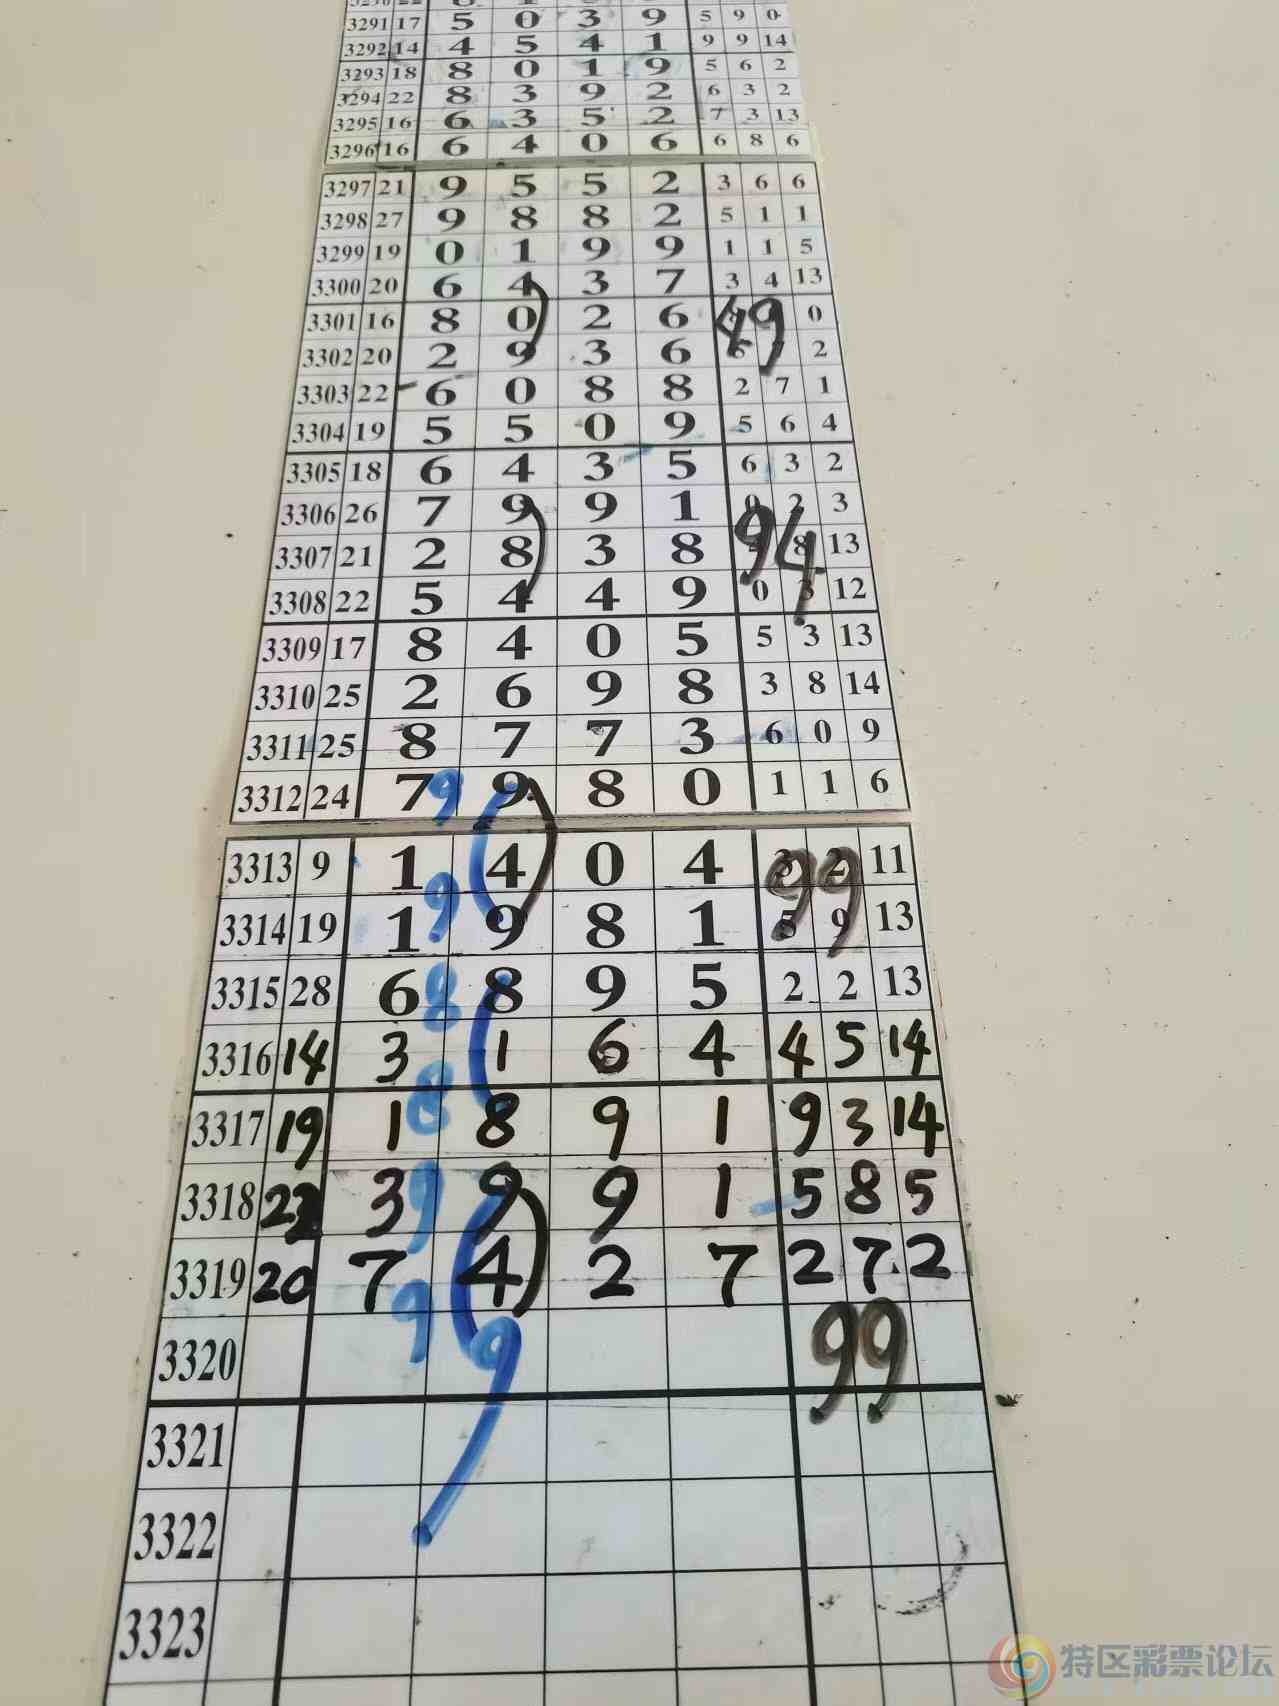 3291 17 5 0 3 9 5 9 0
3292 14 4 5 4 1 9 9 14
3293 18 8 0 1 9 5 6 2
3294 22 8 3 9 2 6 3 2
3295 16 6 3 5 2 7 3 13
3296 16 6 4 0 6 6 8 6
3297 21 9 5 5 2 3 6 6
3298 27 9 8 8 2 5 1 1
3299 19 0 1 9 9 1 1 5
3300 20 6 4 3 7 3 4 13
3301 16 8 0 2 6 49 0
3302 20 2 9 3 6 2
3303 22 6 0 8 8 2 7 1
3304 19 5 5 0 9 5 6 4
3305 18 6 4 3 5 6 3 2
3306 26 7 9 9 1 0 2 3
3307 21 2 8 3 8 94 8 13
3308 22 5 4 4 9 0 3 12
3309 17 8 4 0 5 5 3 13
3310 25 2 6 9 8 3 8 14
3311 25 8 7 7 3 6 0 9
3312 24 7 9 9 8 0 1 1 6
3313 9 1 4 0 4 3 2 11
99
3314 19 1 9 9 8 1 5 9 13
3315 28 6 8 8 9 5 2 2 13
3316 14 3 1 6 4 4 5 14
3317 19 1 8 8 9 1 9 3 14
3318 22 3 9 9 9 1 5 8 5
3319 20 7 4 2 7 2 7 2
3320 9 9 99
3321
3322
3323
特区彩票论坛